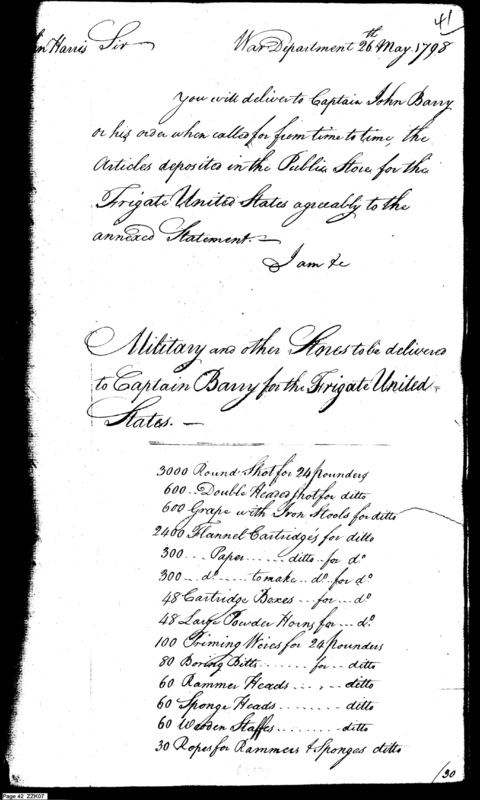 41
hn Harris Sir War Department 26th May 1798
You will deliver to Captain John Barry
or his order when called for from time to time, the
Articles deposited in the Public Store for the
Frigate United States agreeably to the
annexed Statement.—
I am &c
Military and other Stores to be delivered
to Captain Barry for the Frigate United
States.—
3000 Round Shot for 24 pounders
600 .. Double Headed shot for ditto
600 Grape with Iron Stools for ditto
2400 Flannel Cartridges for ditto
300 ... Paper ...... ditto .. for do
300 — do .... to make .. do for do
48 Cartridge Boxes ... for ... do
48 Large Powder Horns for ... do
100 Priming Wires for 24 pounders
80 Boring Bitts ....... for .. ditto
60 Rammer Heads ... „ .... ditto
60 Sponge Heads ......... ditto
60 Wooden Staffes ......... ditto
30 Ropes for Rammers & Sponges ditto
30
Page 42 ZZK07